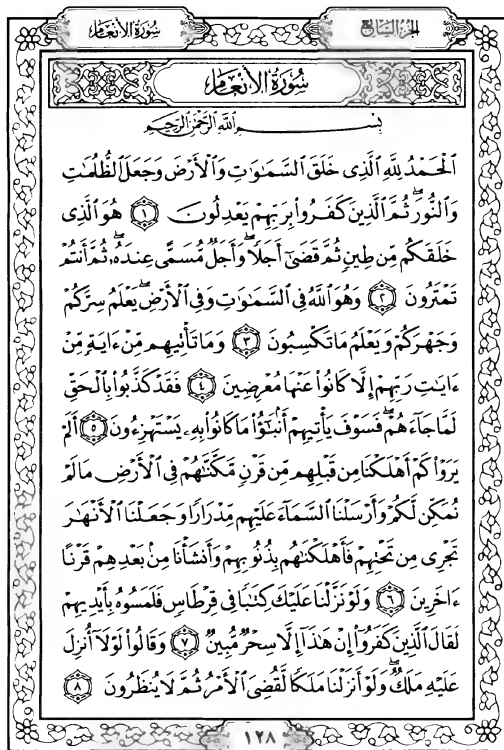 سُورَةُ الأَنْعَام
الجُزْءُ السَّابِع
سُورَةُ الأَنْعَام
بِسْمِ اللَّهِ الرَّحْمَٰنِ الرَّحِيمِ
ٱلْحَمْدُ لِلَّهِ ٱلَّذِى خَلَقَ ٱلسَّمَٰوَٰتِ وَٱلْأَرْضَ وَجَعَلَ ٱلظُّلُمَٰتِ
وَٱلنُّورَ ۖ ثُمَّ ٱلَّذِينَ كَفَرُوا۟ بِرَبِّهِمْ يَعْدِلُونَ ١ هُوَ ٱلَّذِى
خَلَقَكُم مِّن طِينٍ ثُمَّ قَضَىٰٓ أَجَلًا ۖ وَأَجَلٌ مُّسَمًّى عِندَهُۥ ۖ ثُمَّ أَنتُمْ
تَمْتَرُونَ ٢ وَهُوَ ٱللَّهُ فِى ٱلسَّمَٰوَٰتِ وَفِى ٱلْأَرْضِ ۖ يَعْلَمُ سِرَّكُمْ
وَجَهْرَكُمْ وَيَعْلَمُ مَا تَكْسِبُونَ ٣ وَمَا تَأْتِيهِم مِّنْ ءَايَةٍ مِّنْ
ءَايَٰتِ رَبِّهِمْ إِلَّا كَانُوا۟ عَنْهَا مُعْرِضِينَ ٤ فَقَدْ كَذَّبُوا۟ بِٱلْحَقِّ
لَمَّا جَآءَهُمْ ۖ فَسَوْفَ يَأْتِيهِمْ أَنۢبَٰٓؤُا۟ مَا كَانُوا۟ بِهِۦ يَسْتَهْزِءُونَ ٥ أَلَمْ
يَرَوْا۟ كَمْ أَهْلَكْنَا مِن قَبْلِهِم مِّن قَرْنٍ مَّكَّنَّٰهُمْ فِى ٱلْأَرْضِ مَا لَمْ
نُمَكِّن لَّكُمْ وَأَرْسَلْنَا ٱلسَّمَآءَ عَلَيْهِم مِّدْرَارًا وَجَعَلْنَا ٱلْأَنْهَٰرَ
تَجْرِى مِن تَحْتِهِمْ فَأَهْلَكْنَٰهُم بِذُنُوبِهِمْ وَأَنشَأْنَا مِنۢ بَعْدِهِمْ قَرْنًا
ءَاخَرِينَ ٦ وَلَوْ نَزَّلْنَا عَلَيْكَ كِتَٰبًا فِى قِرْطَاسٍ فَلَمَسُوهُ بِأَيْدِيهِمْ
لَقَالَ ٱلَّذِينَ كَفَرُوٓا۟ إِنْ هَٰذَآ إِلَّا سِحْرٌ مُّبِينٌ ٧ وَقَالُوا۟ لَوْلَآ أُنزِلَ
عَلَيْهِ مَلَكٌ ۖ وَلَوْ أَنزَلْنَا مَلَكًا لَّقُضِىَ ٱلْأَمْرُ ثُمَّ لَا يُنظَرُونَ ٨
١٢٨